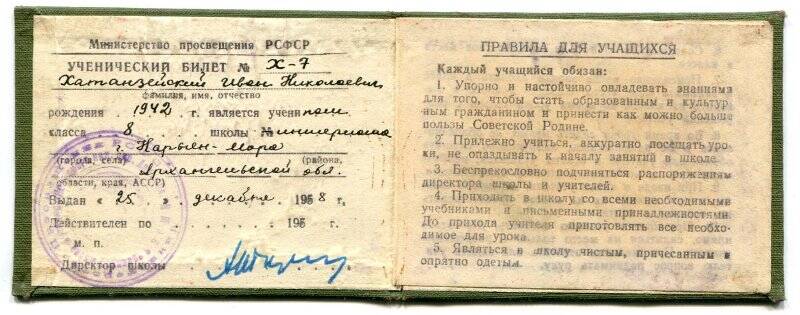 Министерство просвещения РСФСР
УЧЕНИЧЕСКИЙ БИЛЕТ № Х-7
Хатанзейский Иван Николаевич
фамилия, имя, отчество
рождения 1942 г. является учени ком
класса 8 школы № интерната
г. Нарьян-Мара
(города, села) (района,
Архангельской обл.
области, края, АССР)
Выдан « 25 » декабря 1958 г,
Действителен по . . . . . . . 195 г.
м. п.
Директор школы
ПРАВИЛА ДЛЯ УЧАЩИХСЯ
Каждый учащийся обязан:
1. Упорно и настойчиво овладевать знаниями
для того, чтобы стать образованным и культур
ным гражданином и принести как можно больше
пользы Советской Родине.
2. Прилежно учиться, аккуратно посещать уро
ки, не опаздывать к началу занятий в школе.
3. Беспрекословно подчиняться распоряжениям
директора школы и учителей.
4. Приходить в школу со всеми необходимыми
учебниками и письменными принадлежностями.
До прихода учителя приготовлять все необхо-
димое для урока.
5. Являться в школу чистым, причесанным и
опрятно одетым.